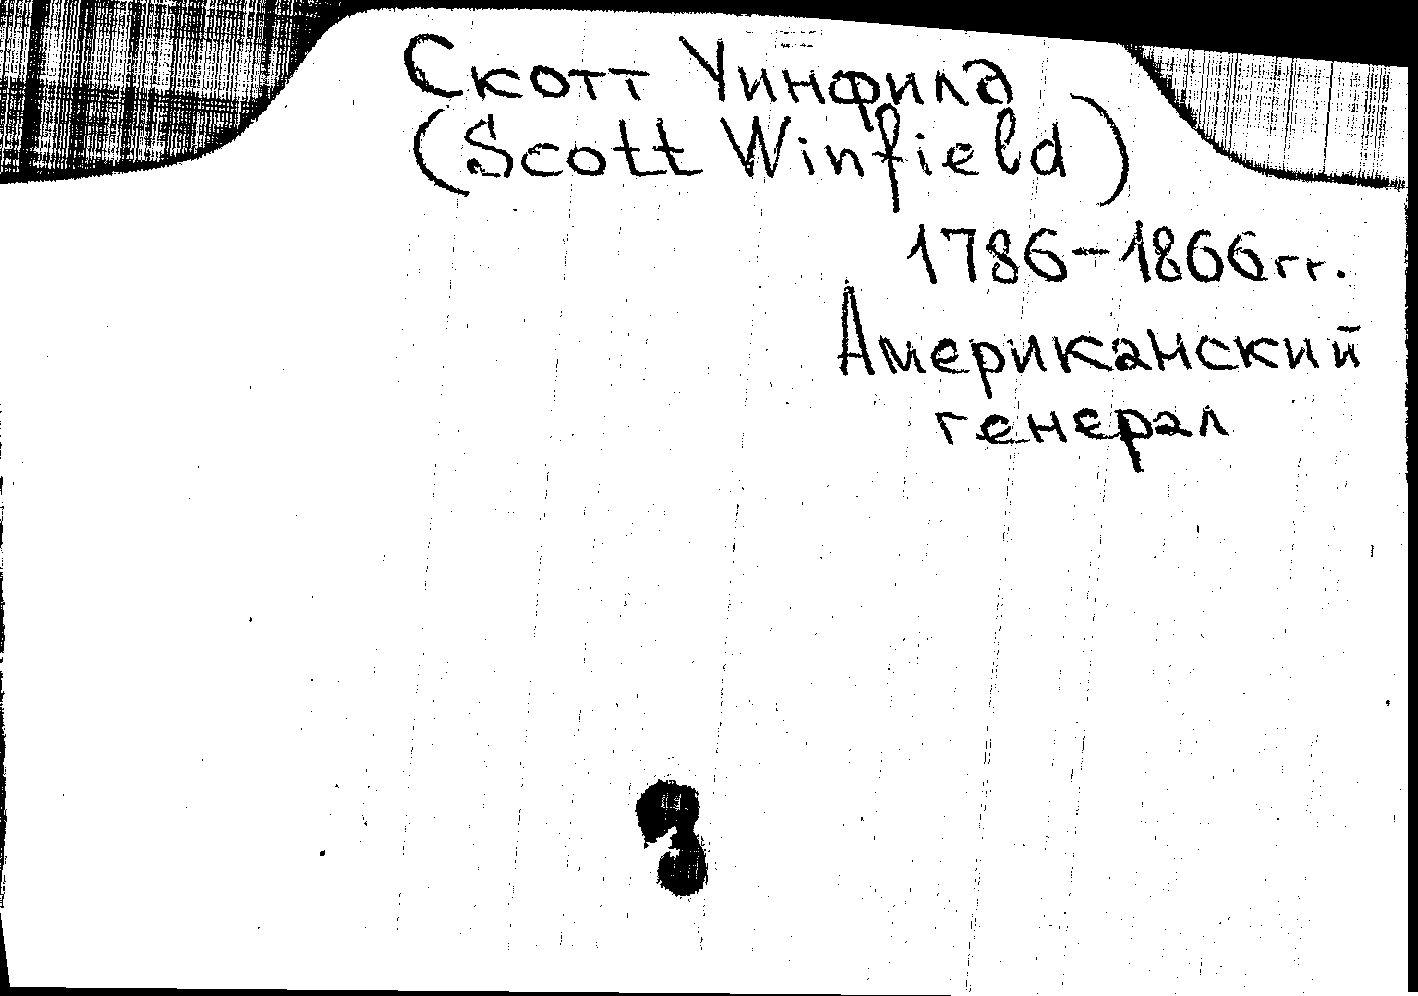 Скотт Уинфилд
(Scott Winfield)
1786-1866гг.
Американский
генерал